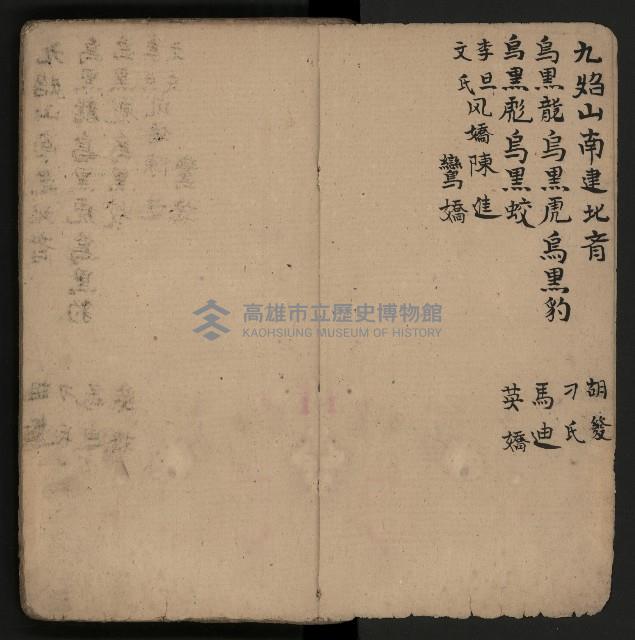 九焰山南建北育
烏黑龍烏黑虎烏黑豹
烏黑彪烏黑蛟
李旦风嬌陳進
文氏
鸞嬌
胡發
刁氏
馬迪
英嬌
高雄市立歷史博物館
KAOHSIUNG MUSEUM OF HISTORY